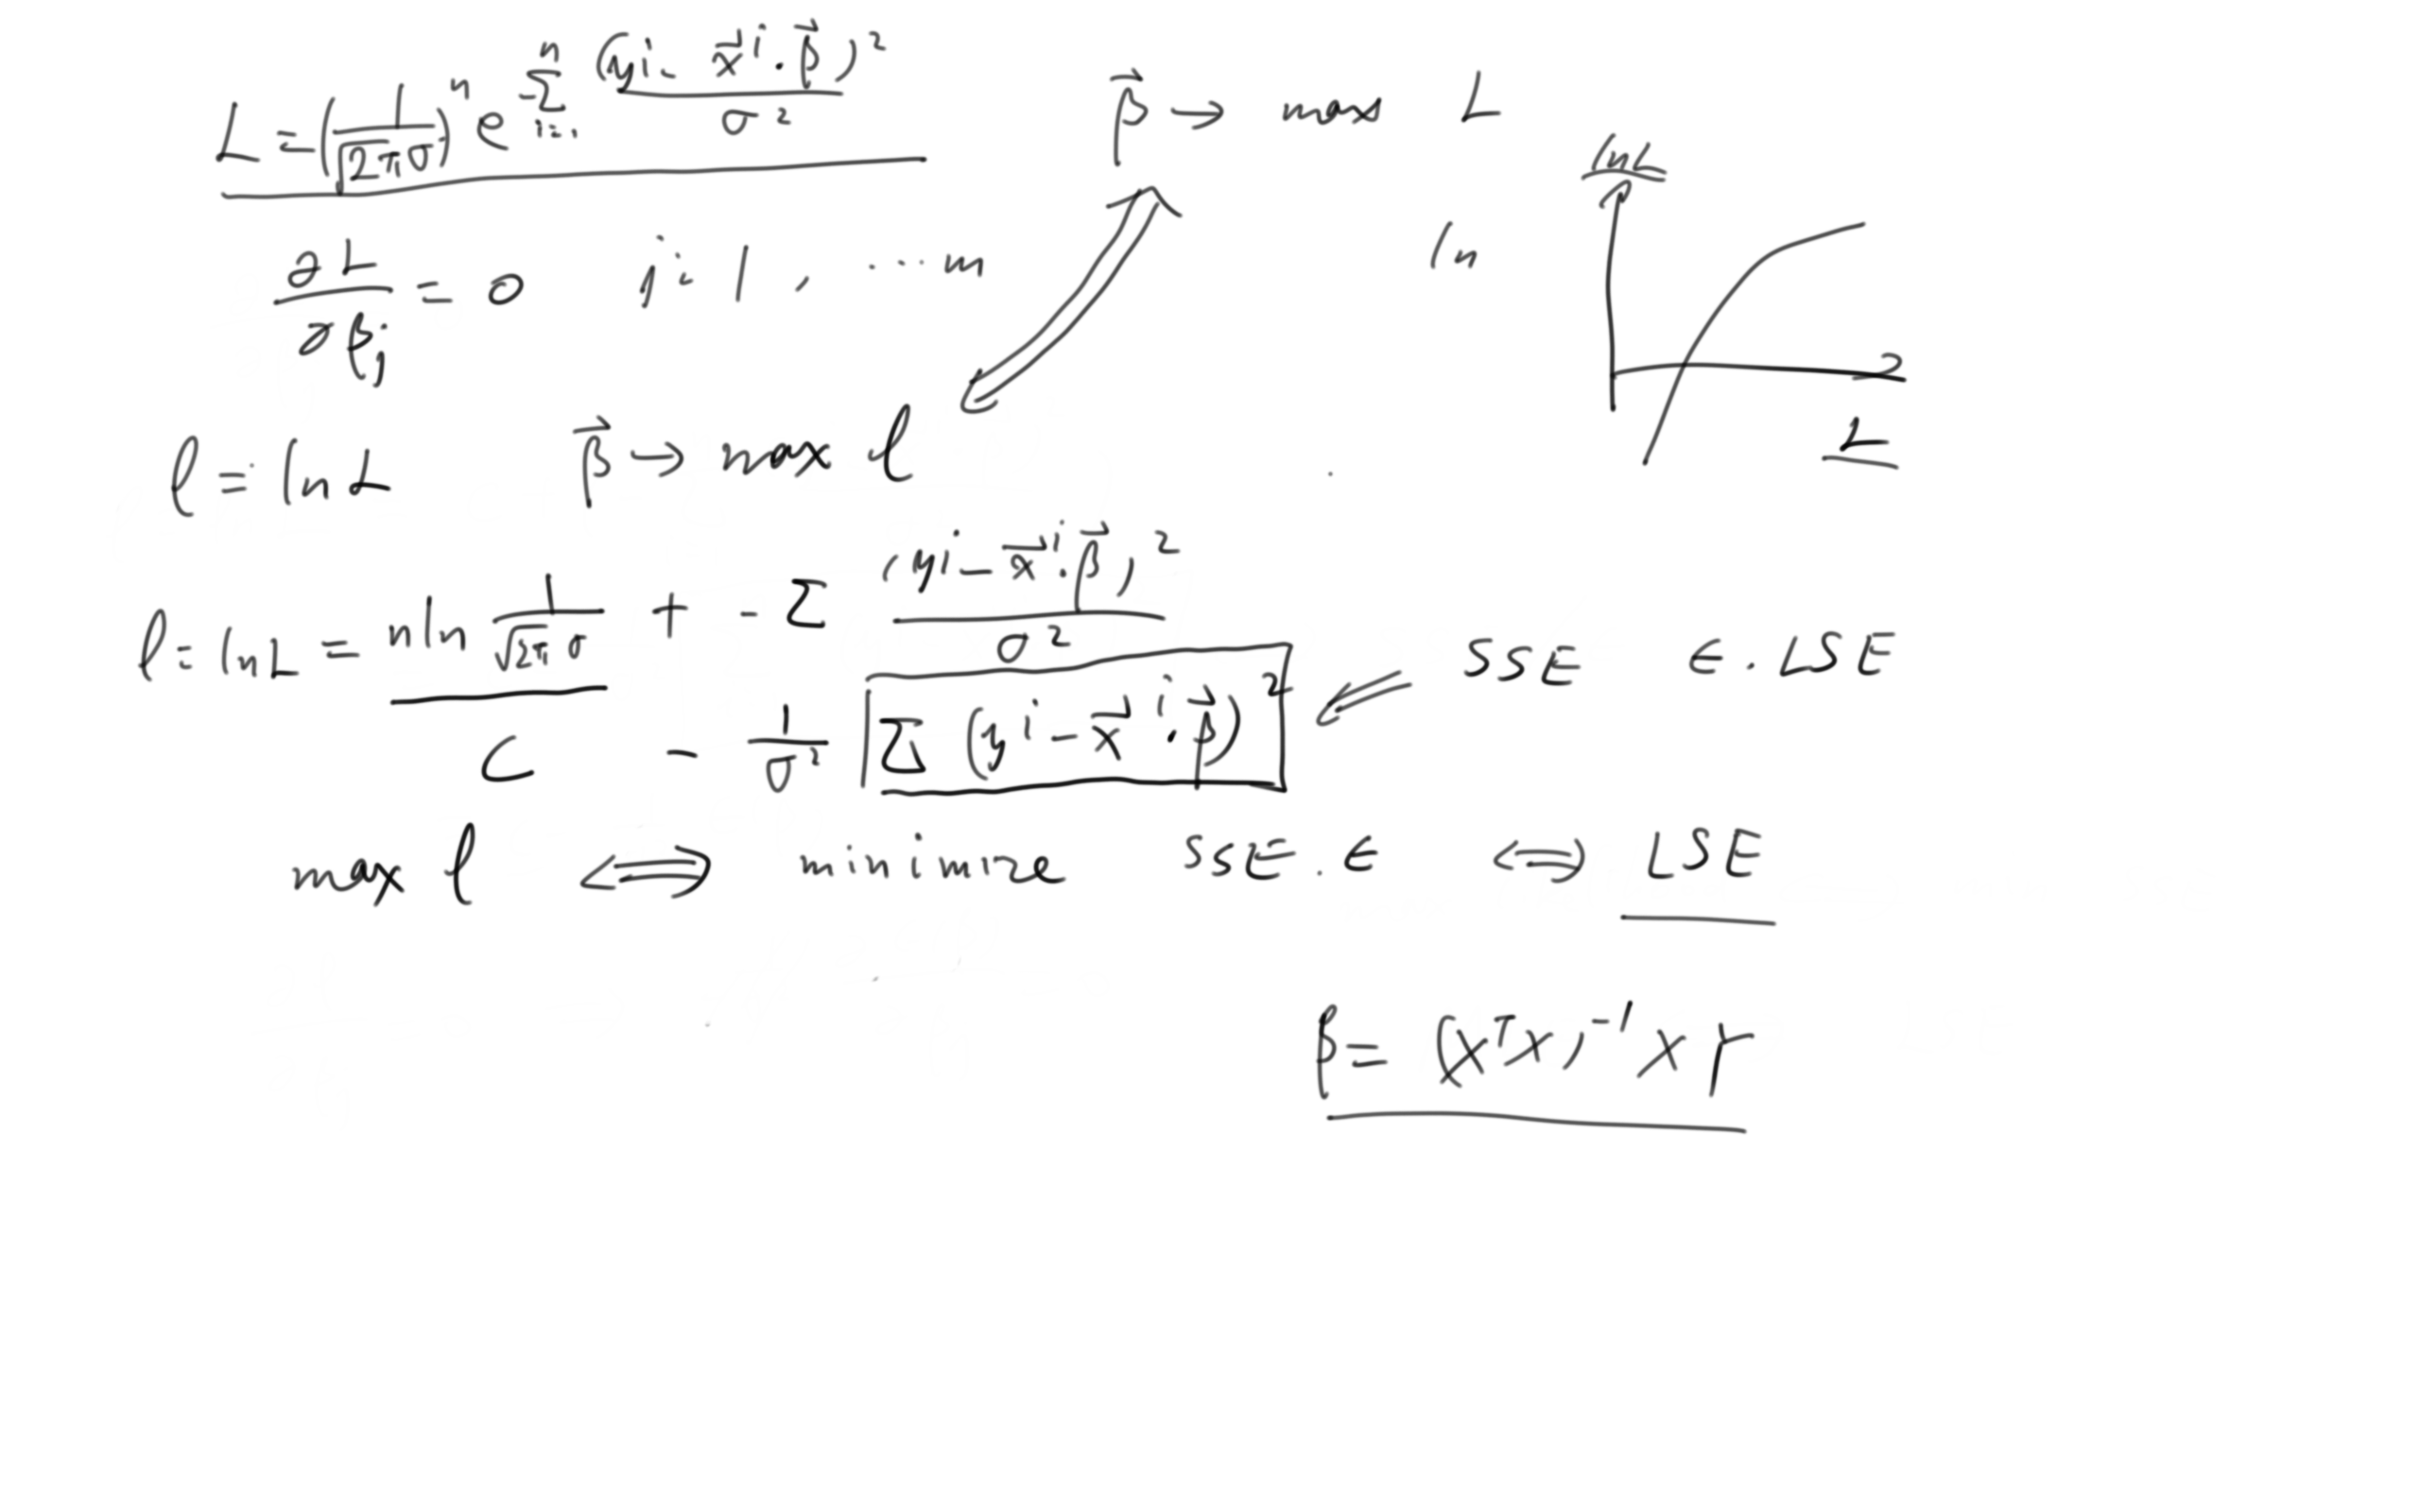 L = (1/√2πσ)ⁿ e^{-Σ_{i=1}^{n} (yi - x⃗ⁱ·β⃗)²/σ²}
β⃗ → max L
∂L/∂βj = 0 j = 1, ... m
ln
lnL
L
l = ln L β⃗ → max l
l = lnL = n ln 1/√2πσ + - Σ (yi - x⃗ⁱ·β⃗)²/σ²
SSE ϵ. LSE
C - 1/σ² Σ (yⁱ - x⃗ⁱ·β⃗)²
max l ⟺ minimize SSE. ϵ ⟺ LSE
β = (XᵀX)⁻¹ X Y